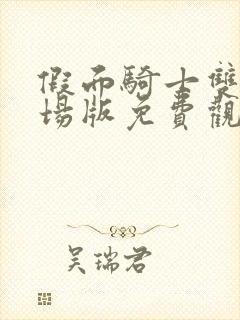 假面騎士雙
場版免費觀
吳瑞君